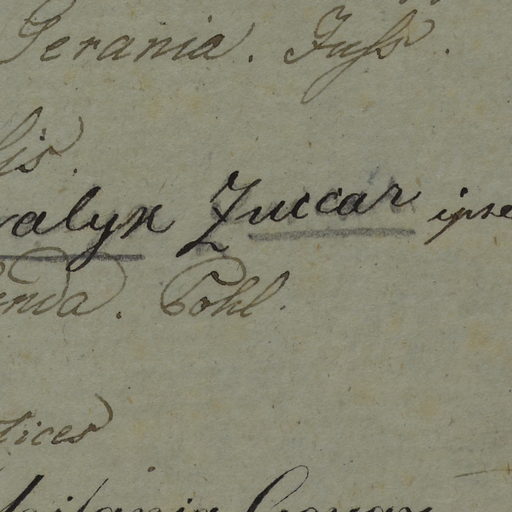 Gerania. Juss.
lis.
calyx Zuccar ipse
enda. Pohl.
tices